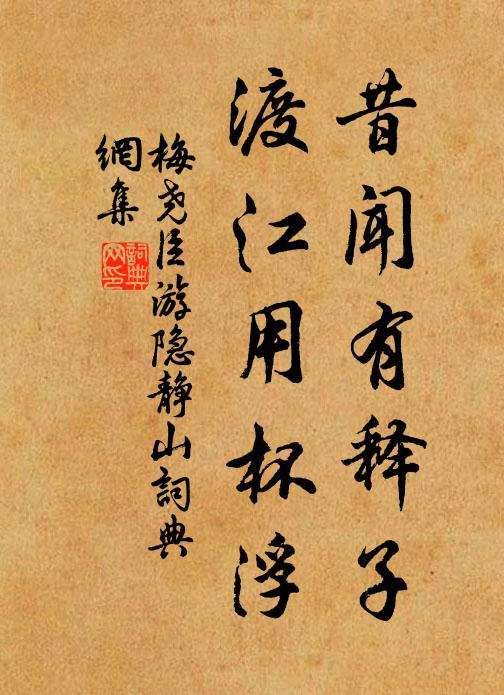 昔闻有释子
渡江用杯浮
梅尧臣游隐静山詞典
網集
詞典
网印